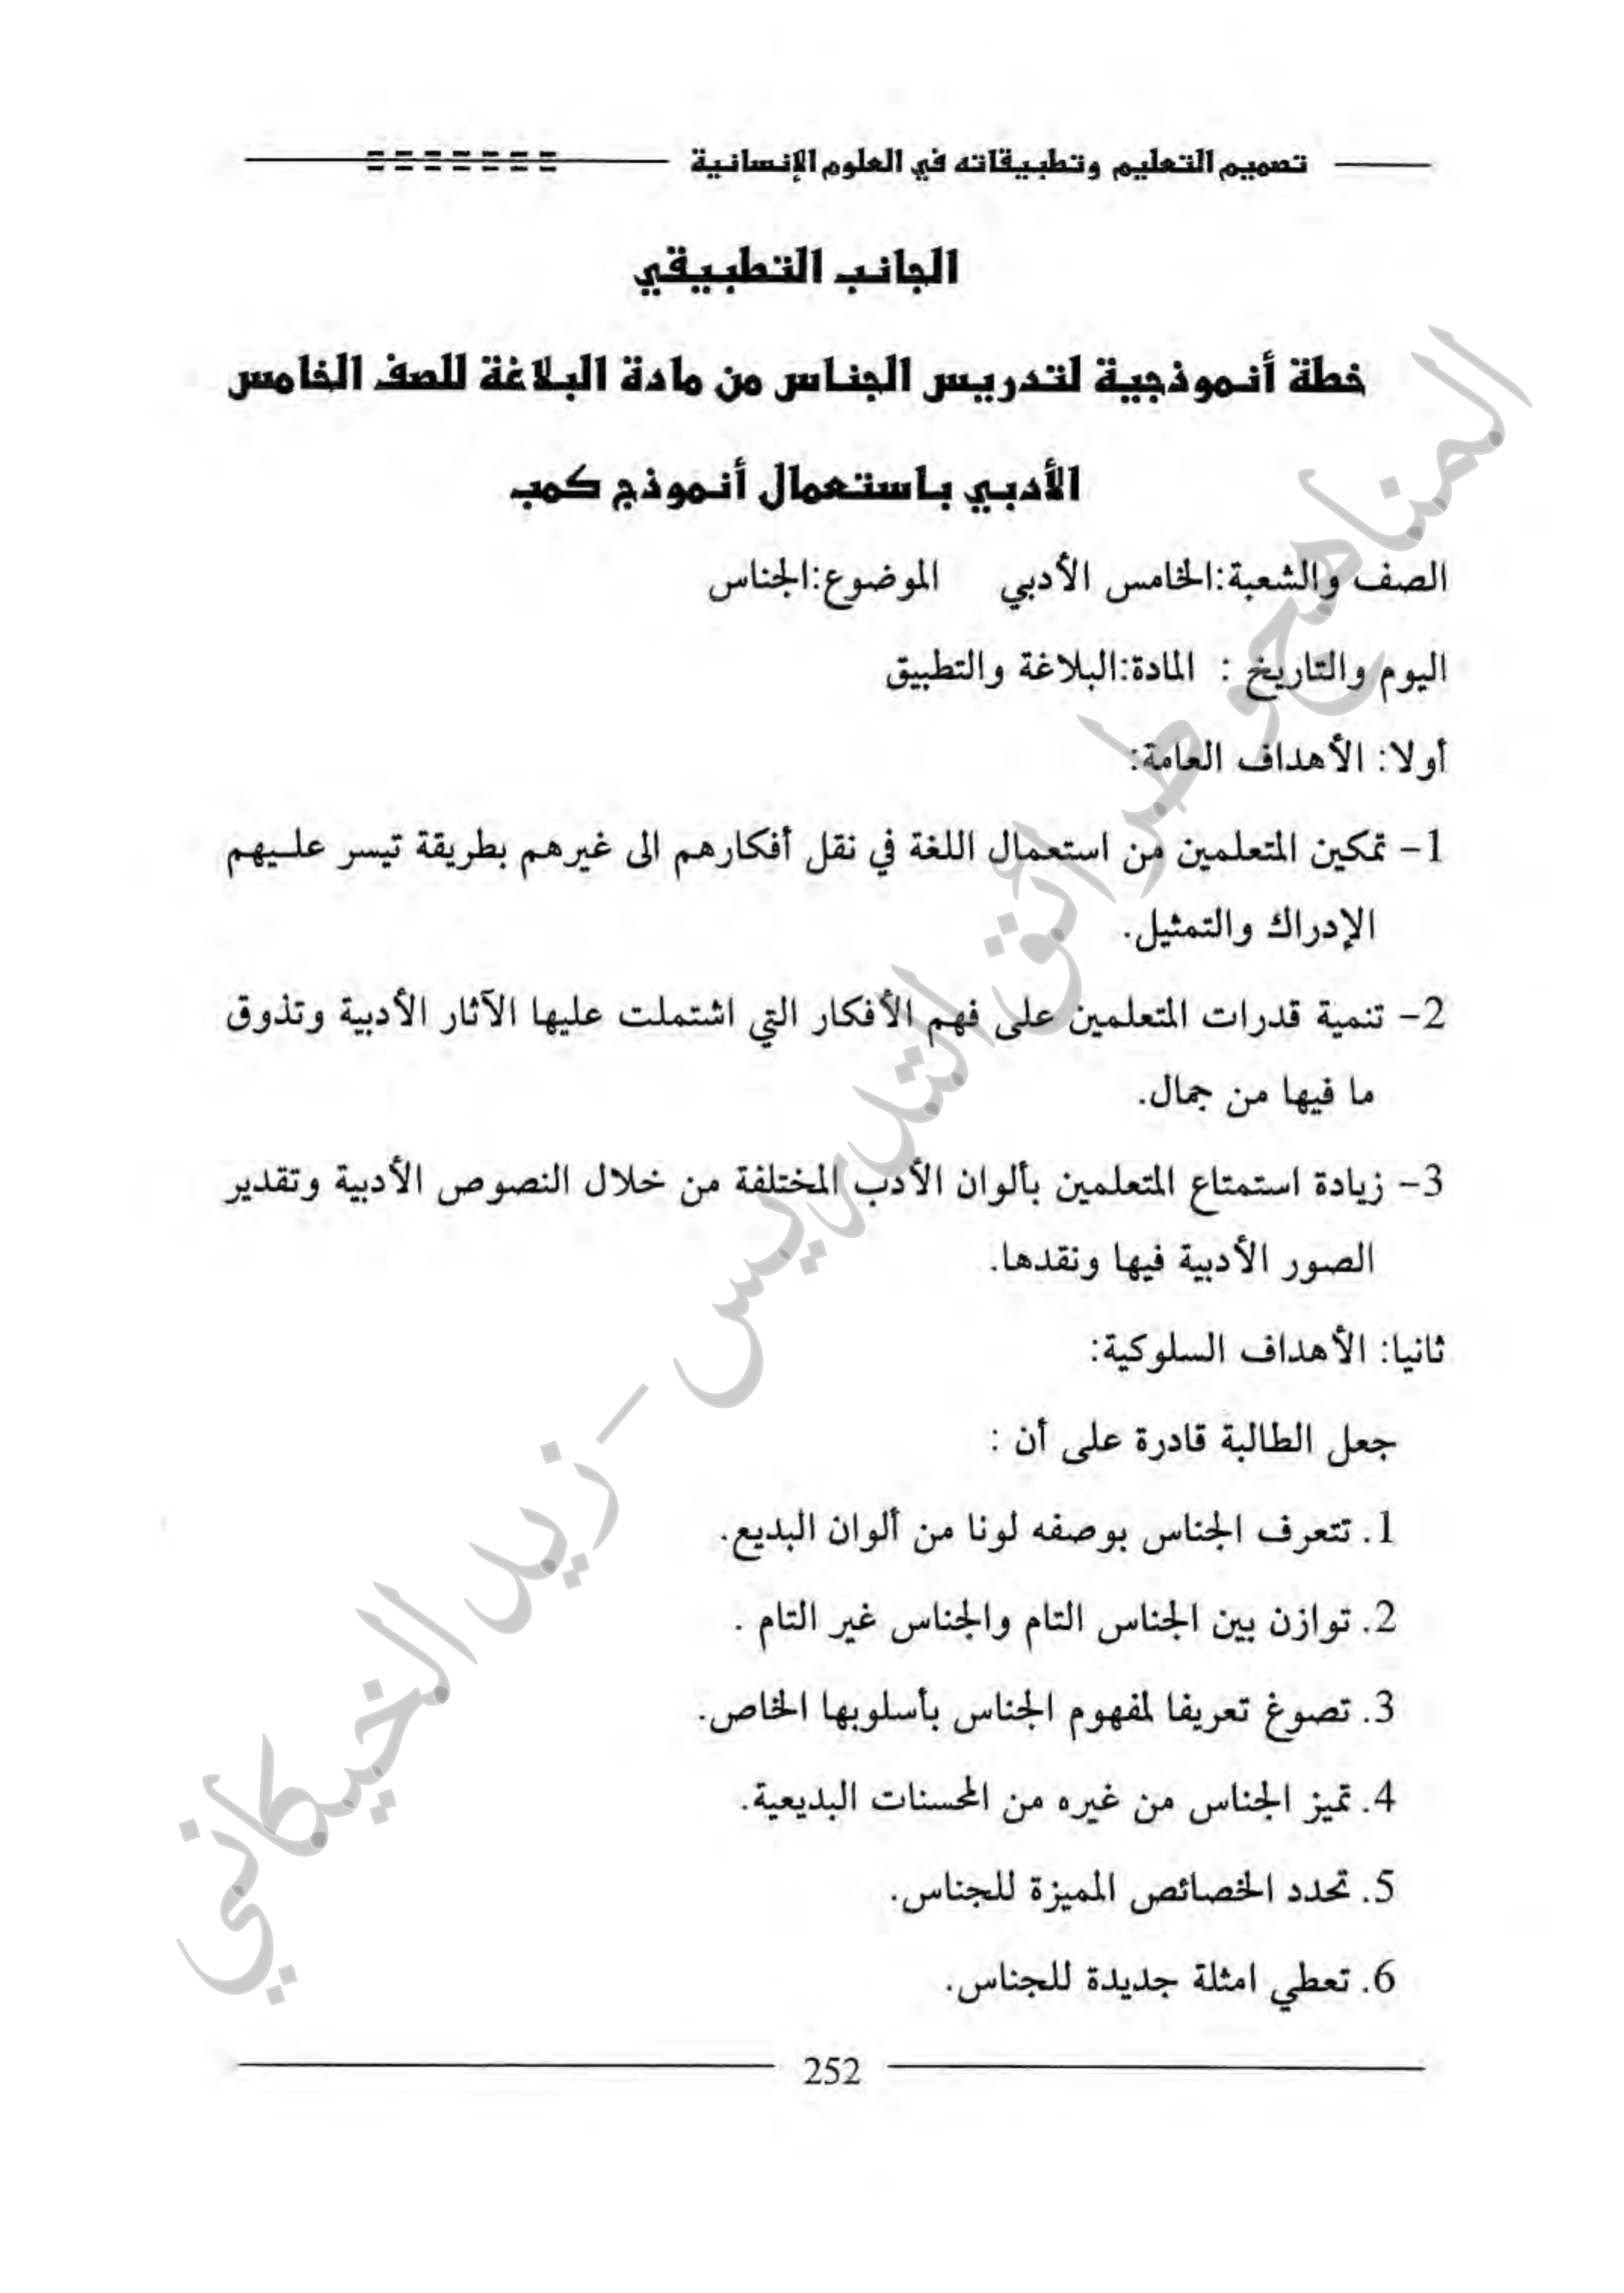 تصميم التعليم وتطبيقاته في العلوم الإنسانية
الجانب التطبيقي
خطة أنموذجية لتدريس الجناس من مادة البلاغة للصف الخامس
الأدبي باستعمال أنموذج كمب
الصف والشعبة:الخامس الأدبي الموضوع:الجناس
اليوم والتاريخ : المادة:البلاغة والتطبيق
أولا: الأهداف العامة:
1- تمكين المتعلمين من استعمال اللغة في نقل أفكارهم الى غيرهم بطريقة تيسر عليهم
الإدراك والتمثيل.
2- تنمية قدرات المتعلمين على فهم الأفكار التي اشتملت عليها الآثار الأدبية وتذوق
ما فيها من جمال.
3- زيادة استمتاع المتعلمين بألوان الأدب المختلفة من خلال النصوص الأدبية وتقدير
الصور الأدبية فيها ونقدها.
ثانيا: الأهداف السلوكية:
جعل الطالبة قادرة على أن :
1. تتعرف الجناس بوصفه لونا من ألوان البديع.
2. توازن بين الجناس التام والجناس غير التام .
3. تصوغ تعريفا لمفهوم الجناس بأسلوبها الخاص.
4. تميز الجناس من غيره من المحسنات البديعية.
5. تحدد الخصائص المميزة للجناس.
6. تعطي امثلة جديدة للجناس.
252
المناهج وطرائق التدريس - زيد الخيكاني